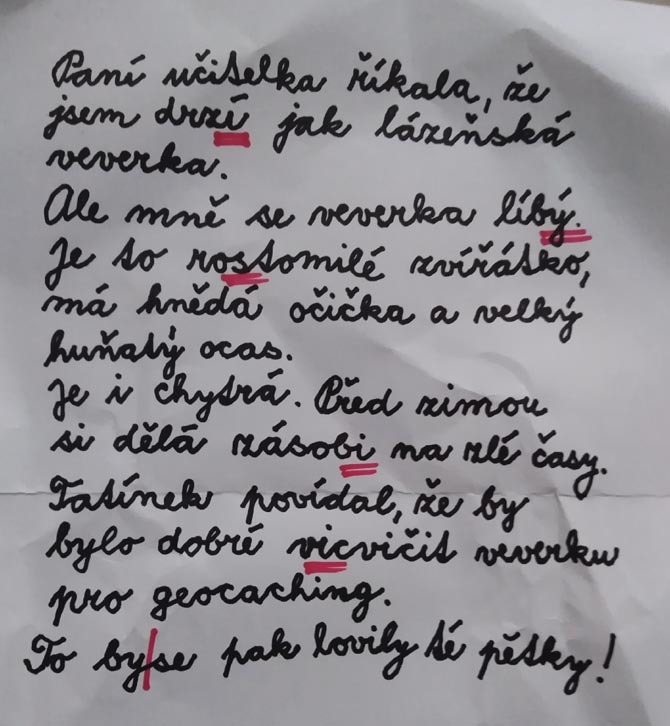 Paní učitelka říkala, že
jsem drzí jak lázeňská
veverka.
Ale mně se veverka líbý.
Je to rostomilé zvířátko,
má hnědá očička a velký
huňatý ocas.
Je i chytrá. Před zimou
si dělá zásobi na zlé časy.
Tatínek povídal, že by
bylo dobré vicvičit veverku
pro geocaching.
To byse pak lovily té pětky!